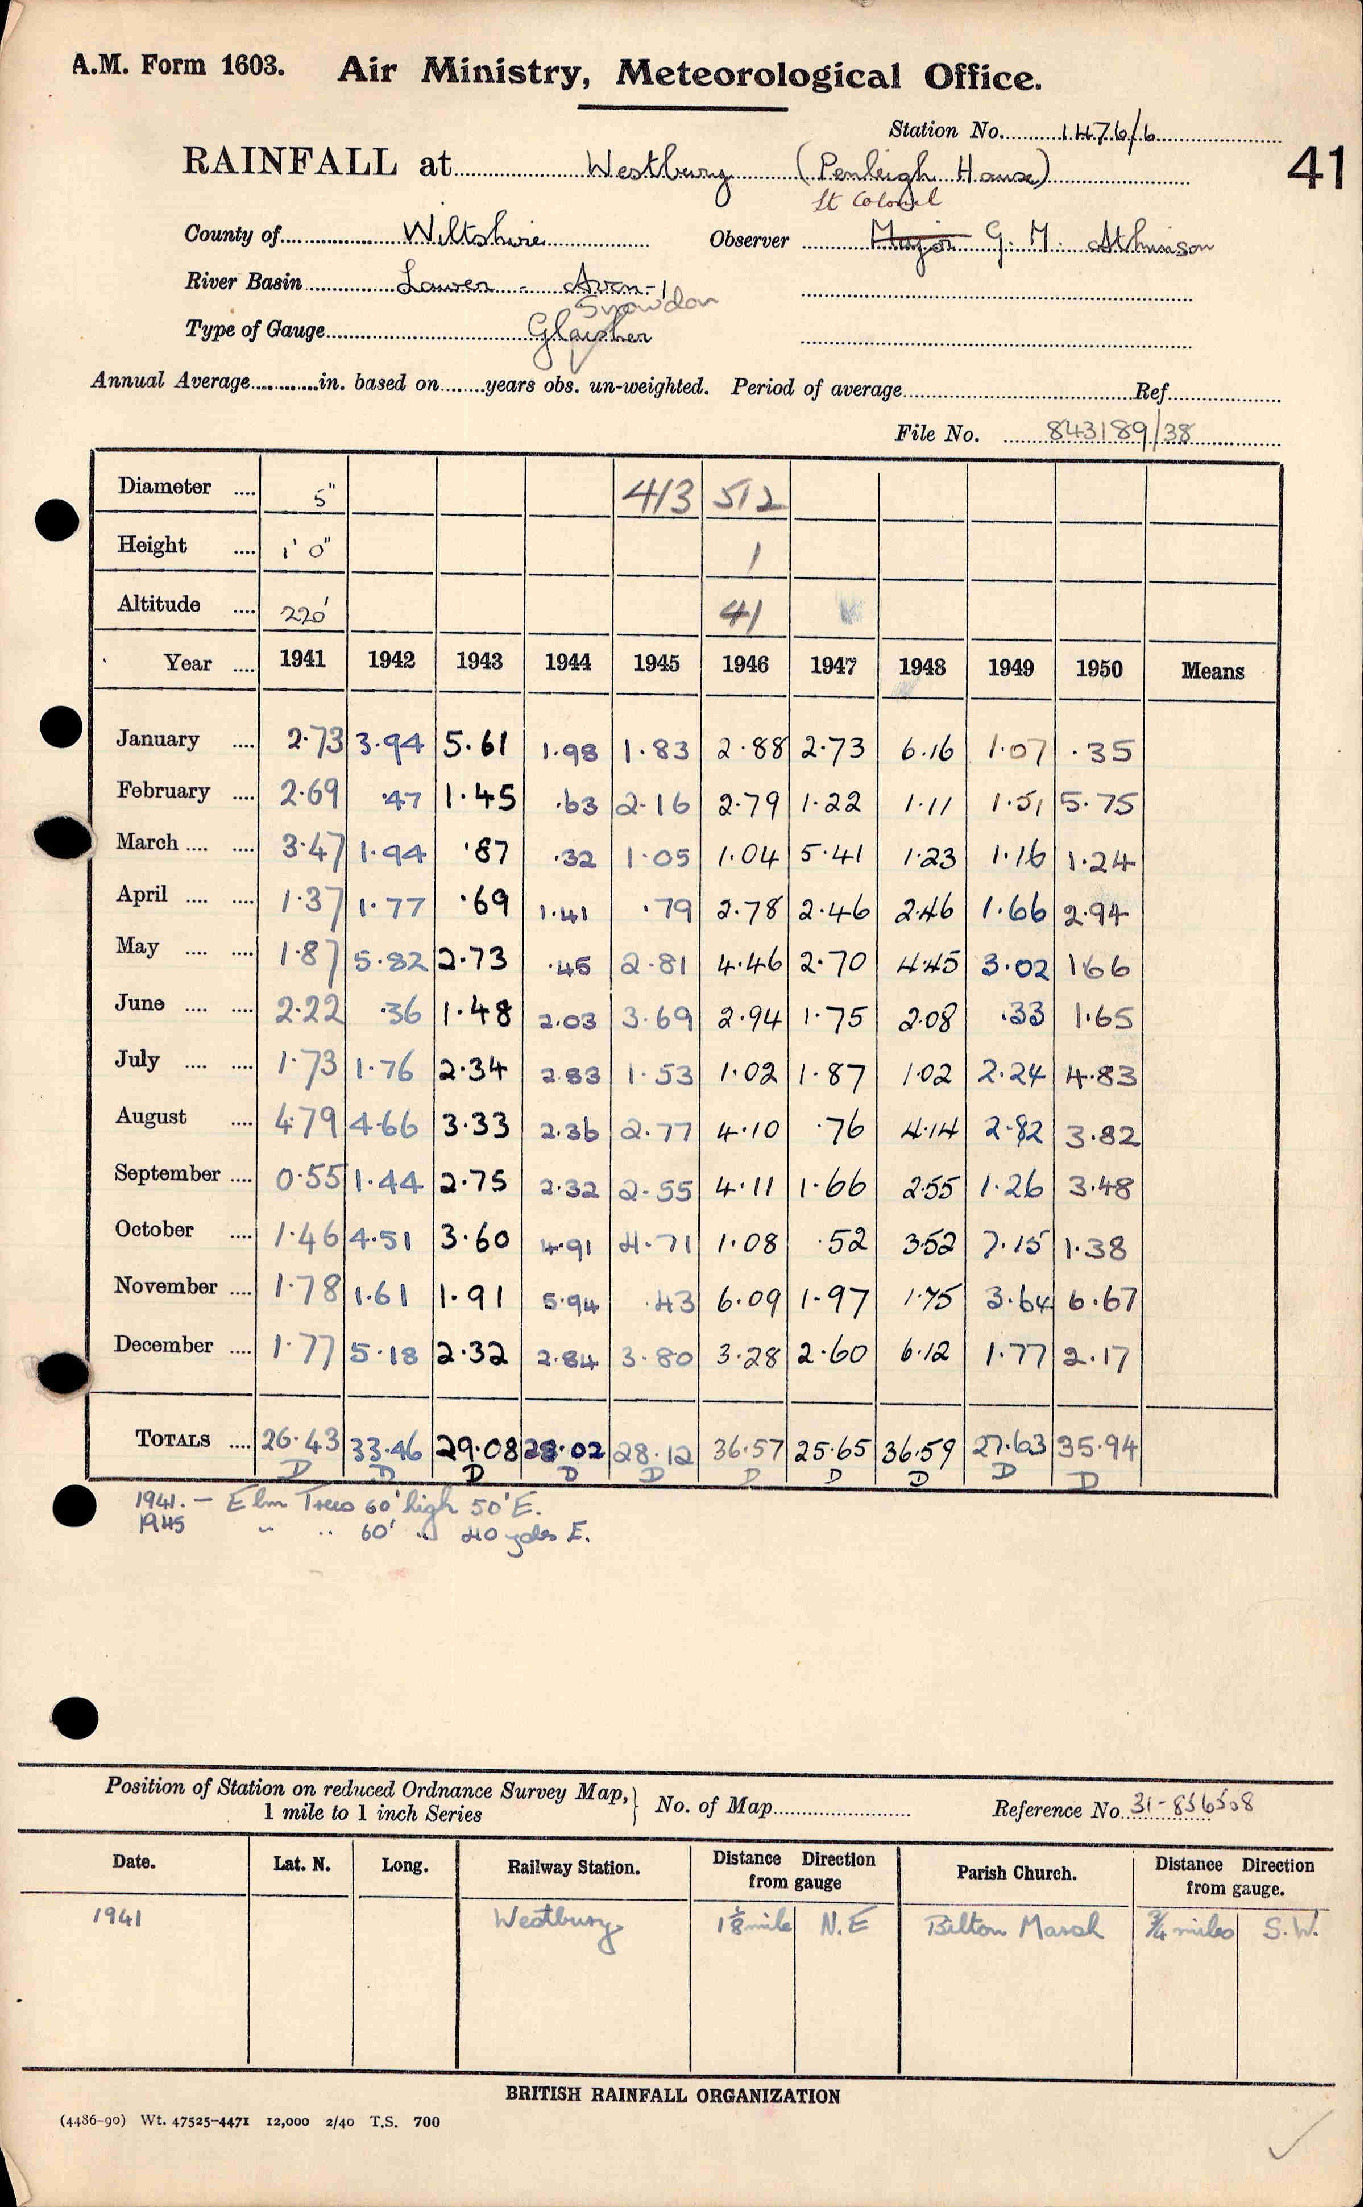 A.M. Form 1603. Air Ministry, Meteorological Office.
Station No. 1476/6
41
RAINFALL at Westbury (Penleigh House)
Lt Colonel
County of Wiltshire Observer Major G. M. Atkinson
River Basin Lower - Avon-1
Snowdon
Type of Gauge Glaisher
Annual Average in. based on years obs. un-weighted. Period of average Ref
File No. 843189/38
Diameter .... 5" 413 512
Height .... 1' 0" 1
Altitude .... 220' 41
Year .... 1941 1942 1943 1944 1945 1946 1947 1948 1949 1950 Means
January .... 2.73 3.94 5.61 1.98 1.83 2.88 2.73 6.16 1.07 .35
February .... 2.69 .47 1.45 .63 2.16 2.79 1.22 1.11 1.51 5.75
March .... .... 3.47 1.94 .87 .32 1.05 1.04 5.41 1.23 1.16 1.24
April .... .... 1.37 1.77 .69 1.41 .79 2.78 2.46 2.46 1.66 2.94
May .... .... 1.87 5.82 2.73 .45 2.81 4.46 2.70 4.45 3.02 1.66
June .... .... 2.22 .36 1.48 2.03 3.69 2.94 1.75 2.08 .33 1.65
July .... .... 1.73 1.76 2.34 2.83 1.53 1.02 1.87 1.02 2.24 4.83
August .... 4.79 4.66 3.33 2.36 2.77 4.10 .76 4.14 2.82 3.82
September .... 0.55 1.44 2.75 2.32 2.55 4.11 1.66 2.55 1.26 3.48
October .... 1.46 4.51 3.60 4.91 4.71 1.08 .52 3.52 7.15 1.38
November .... 1.78 1.61 1.91 5.94 .43 6.09 1.97 1.75 3.64 6.67
December .... 1.77 5.18 2.32 2.84 3.80 3.28 2.60 6.12 1.77 2.17
TOTALS .... 26.43 33.46 29.08 28.02 28.12 36.57 25.65 36.59 27.63 35.94
D D D D D D D D D D
1941. - Elm Trees 60' high 50' E.
1945 " " 60' " 40 yds E.
Position of Station on reduced Ordnance Survey Map, } No. of Map Reference No. 31-856508
1 mile to 1 inch Series
Date. Lat. N. Long. Railway Station. Distance Direction from gauge Parish Church. Distance Direction from gauge.
1941 Westbury 1 1/8 mile N.E Bilton Marsh 3/4 miles S.W.
BRITISH RAINFALL ORGANIZATION
(4486-90) Wt. 47525-4471 12,000 2/40 T.S. 700